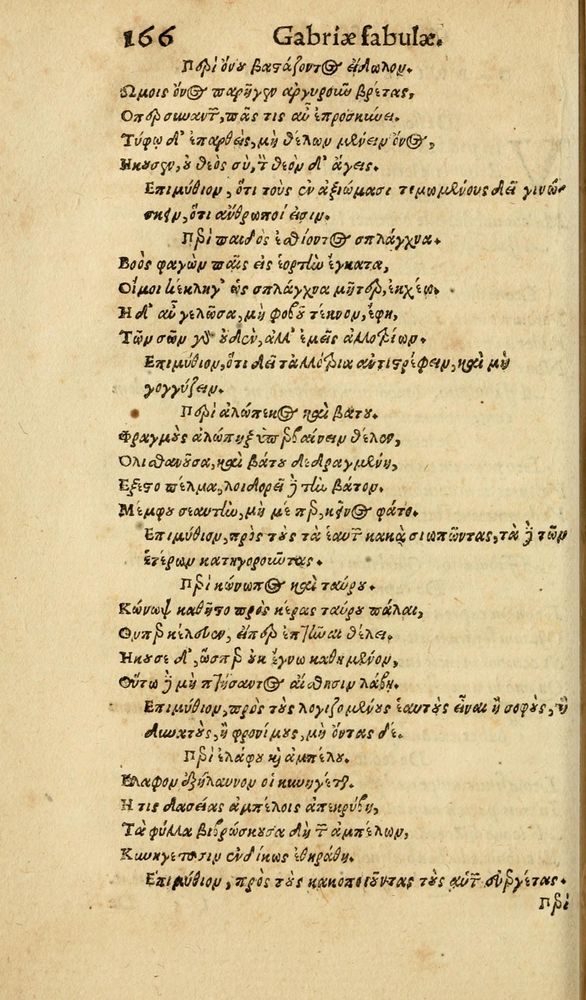 166 Gabriæ fabulæ.
Περὶ ὄνου βαστάζοντος εἴδωλον.
Ωμοις ὄνος παρῆγεν ἀργυροῦν βρέτας,
Οπερ συναντῶν, πᾶς τις αὖ ἐπροσκύνει.
Τύφῳ δ' ἐπαρθεὶς, μὴ θέλων μένειν ὄνος,
Ηκουσεν, ὀ θεὸς σὺ, τὸν θεὸν δ' ἄγεις.
Επιμύθιον, ὅτι τοὺς ἐν ἀξιώμασι τιμωμένους δεῖ γινώ-
σκειν, ὅτι ἄνθρωποί εἰσιν.
Περὶ παιδὸς ἐσθίοντος σπλάγχνα.
Βοὸς φαγὼν παῖς εἰς ἑορτὴν ἔγκατα,
Οἴμοι κέκληγ' ὡς σπλάγχνα μῆτερ, ἐκχέω.
Η δ' αὖ γελῶσα, μὴ φοβοῦ τέκνον, ἔφη,
Τῶν σῶν γὸ οὐδὲν, ἀλλ' ἐμεῖς ἀλλοτρίων.
Επιμύθιον, ὅτι δεῖ τἀλλότρια ἀντιστρέφειν, καὶ μὴ
γογγύζειν.
Περὶ ἀλώπεκος καὶ βάτου.
Φραγμοὺς ἀλώπηξ ὑπερβαίνειν θέλον,
Ὀλισθανοῦσα, καὶ βάτου δεδραγμένη,
Εξεστο πέλμα, λοιδορεῖ δὲ τὴν βάτον.
Μέμφου σεαυτὴν, μὴ μέ περ, κεῖνος φάτο.
Επιμύθιον, πρὸς τοὺς τὰ ἑαυτῶν κακὰ σιωπῶντας, τὰ δὲ τῶν
ἑτέρων κατηγοροῦντας.
Περὶ κώνωπος καὶ ταύρου.
Κώνωψ καθῆστο πρὸς κέρας ταύρου πάλαι,
Θυπερ κέλευεν, εἴπερ ἐπτῆναι θέλει.
Ηκουσε δ', ὥσπερ οὐκ ἔγνω καθήμενον,
Οὕτω δὲ μὴ πτήσαντος αἴσθησιν λάβῃ.
Επιμύθιον, πρὸς τοὺς λογιζομένους ἑαυτοὺς εἶναι ἢ σοφοὺς, ἢ
δυνατοὺς, ἢ φρονίμους, μὴ ὄντας δέ.
Περὶ ἐλάφου καὶ ἀμπέλου.
Ελαφον ἐξήλαυνον οἱ κυνηγέται.
Η τις δασείας ἀμπέλοις ἀπεκρύβη,
Τὰ φύλλα βιβρώσκουσα δὴ τῶν ἀμπέλων,
Κυνηγέταισιν ἐνδίκως ἐθηράθη.
Επιμύθιον, πρὸς τοὺς κακοποιοῦντας τοὺς αὐτῶν εὐεργέτας.
Περὶ